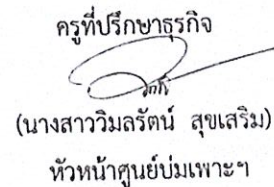 ครูที่ปรึกษาธุรกิจ
(นางสาววิมลรัตน์ สุขเสริม)
หัวหน้าศูนย์บ่มเพาะฯ